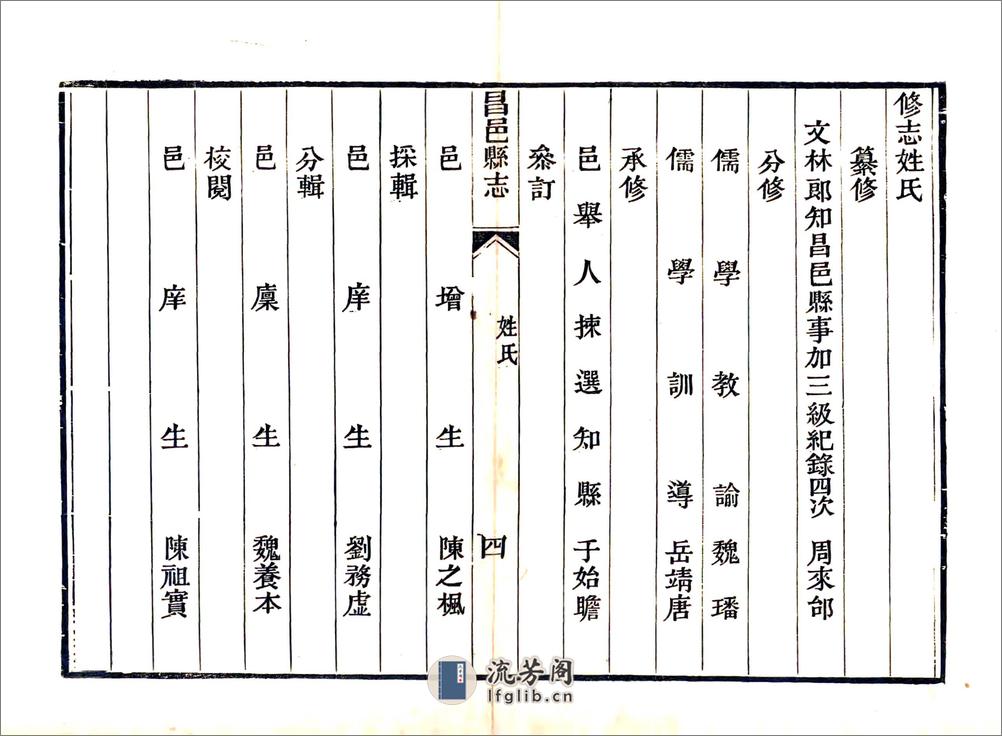 修志姓氏
纂修
文林郎知昌邑縣事加三級紀錄四次 周來邰
分修
儒學教諭 魏璠
儒學訓導 岳靖唐
承修
邑舉人揀選知縣 于始瞻
叅訂
昌邑縣志 姓氏 四
邑增生 陳之楓
採輯
邑庠生 劉務虛
分輯
邑廩生 魏養本
校閱
邑庠生 陳祖實
流芳阁
lfglib.cn